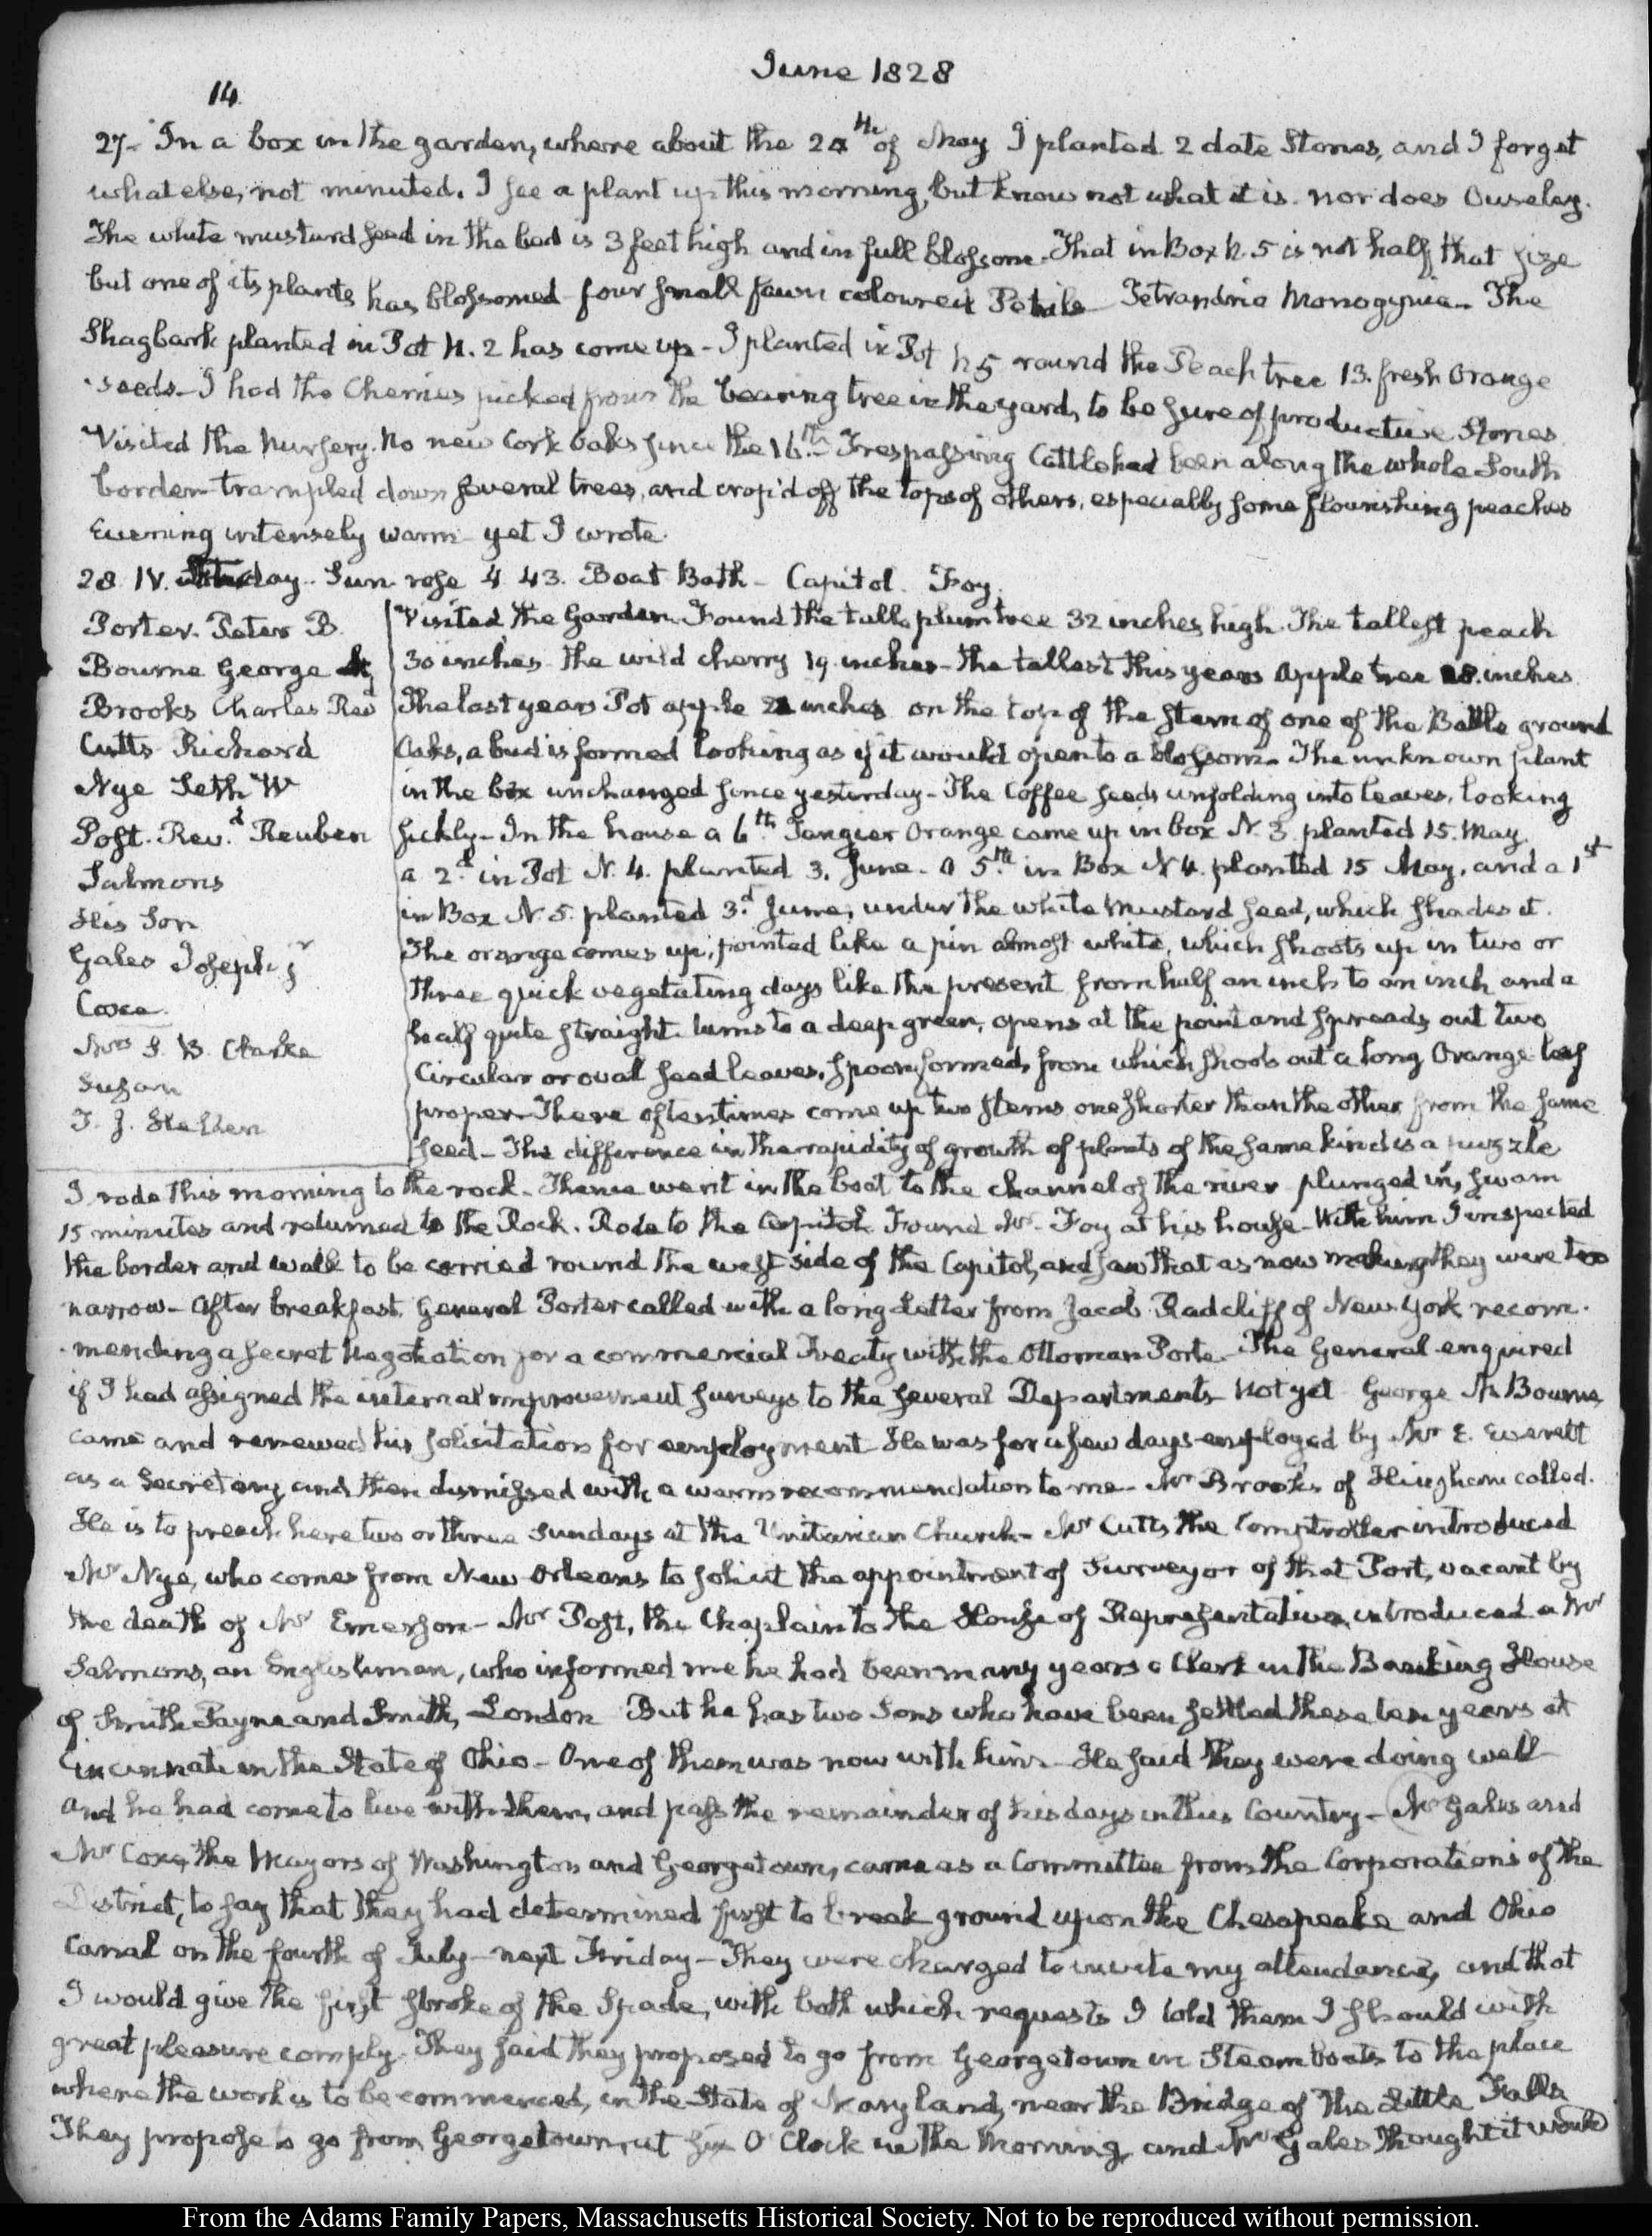 June 1828
14
27. In a box in the garden, where about the 24th of May I planted 2 date Stones, and I forget
what else, not minuted. I see a plant up this morning, but know not what it is nor does Ouseley.
The white mustard seed in the bed is 3 feet high and in full blossom. That in Box N. 5 is not half that size
but one of its plants has blossomed four small fawn coloured Petals Tetrandria Monogynia. The
Shagbark planted in Pot N. 2 has come up - I planted in Pot N 5 round the Peach tree 13. fresh Orange
seeds. I had the Cherries picked from the bearing tree in the yard, to be sure of productive Stones
Visited the Nursery. No new Cork Oaks since the 16th. Trespassing Cattle had been along the whole South
border trampled down several trees, and crop'd off the tops of others, especially some flourishing peaches
Evening intensely warm - yet I wrote.
28. IV. Saturday. Sun rose 4. 43. Boat Bath - Capitol. Foy.
Porter. Peter B.
Bourne George
Brooks Charles Revd
Cutts Richard
Nye Seth W
Post. Revd. Reuben
Salmons
His Son
Gales Joseph jr
Coxe
Mrs S. B. Clarke
Susan
T. J. Hellen
Visited the Garden. Found the tall plum tree 32 inches high. The tallest peach
30 inches the wild cherry 19 inches - the tallest this years Apple tree 28. inches
The last years Pot apple inches on the top of the stem of one of the Battle ground
Oaks, a bud is formed looking as if it would open to a blossom. The unknown plant
in the box unchanged since yesterday - The Coffee seeds unfolding into leaves, looking
sickly - In the house a 6th. Tangier Orange come up in box N. 3 planted 15. May
a 2d. in Pot N. 4. planted 3. June. a 5th. in Box N 4. planted 15 May. and a 1st
in Box N. 5. planted 3d. June, under the white Mustard seed, which shades it.
The orange comes up, pointed like a pin almost white, which shoots up in two or
three quick vegetating days like the present from half an inch to an inch and a
half quite straight. turns to a deep green, opens at the point and spreads out two
Circular or oval seed leaves, spoon formed, from which shoots out a long Orange leaf
proper. There oftentimes come up two stems one shorter than the other from the same
seed - The difference in the rapidity of growth of plants of the same kind is a puzzle
I rode this morning to the rock. Thence went in the boat to the channel of the river plunged in, swam
15 minutes and returned to the Rock. Rode to the Capitol Found Mr. Foy at his house - With him I inspected
the border and walk to be carried round the west side of the Capitol, and saw that as now making they were too
narrow - After breakfast. General Porter called with a long letter from Jacob Radcliff of New York recom-
-mending a secret Negotiation for a commercial Treaty with the Ottoman Porte. The General enquired
if I had assigned the internal improvement surveys to the several Departments Not yet George M Bourne
came and renewed his solicitation for employment He was for a few days employed by Mr E. Everett
as a Secretary, and then dismissed with a warm recommendation to me. Mr Brooks of Hingham called.
He is to preach here two or three Sundays at the Unitarian Church. Mr Cutts the Comptroller introduced
Mr Nye, who comes from New Orleans to solicit the appointment of Surveyor of that Port, vacant by
the death of Mr Emerson - Mr Post, the Chaplain to the House of Representatives, introduced a Mr
Salmons, an Englishman, who informed me he had been many years a Clerk in the Banking House
of Smith Payne and Smith, London But he has two Sons who have been settled these ten years at
Cincinnati in the State of Ohio - One of them was now with him. He said they were doing well
and he had come to live with them, and pass the remainder of his days in this Country - Mr Gales and
Mr Coxe, the Mayors of Washington and Georgetown, came as a Committee from the Corporations of the
District, to say that they had determined first to break ground upon the Chesapeake and Ohio
Canal on the fourth of July - next Friday - They were charged to invite my attendance, and that
I would give the first stroke of the Spade, with both which requests I told them I should with
great pleasure comply. They said they proposed to go from Georgetown in Steam boats to the place
where the work is to be commenced, in the State of Maryland, near the Bridge of the Little Falls
They propose to go from Georgetown, at six O'Clock in the Morning, and Mr Gales thought it would
From the Adams Family Papers, Massachusetts Historical Society. Not to be reproduced without permission.